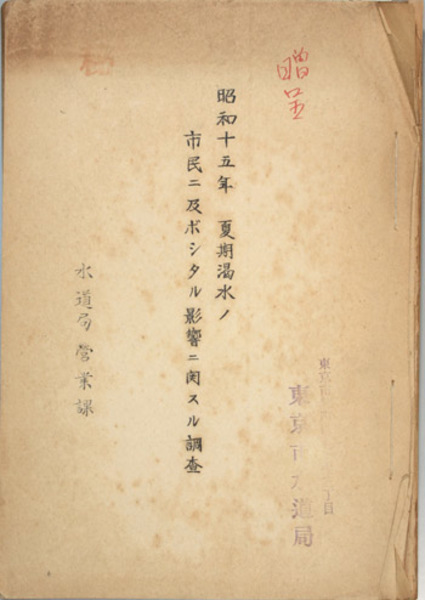 贈呈
昭和十五年 夏期渇水ノ
市民ニ及ボシタル影響ニ関スル調査
水道局営業課
東京市
丁目
東京市水道局